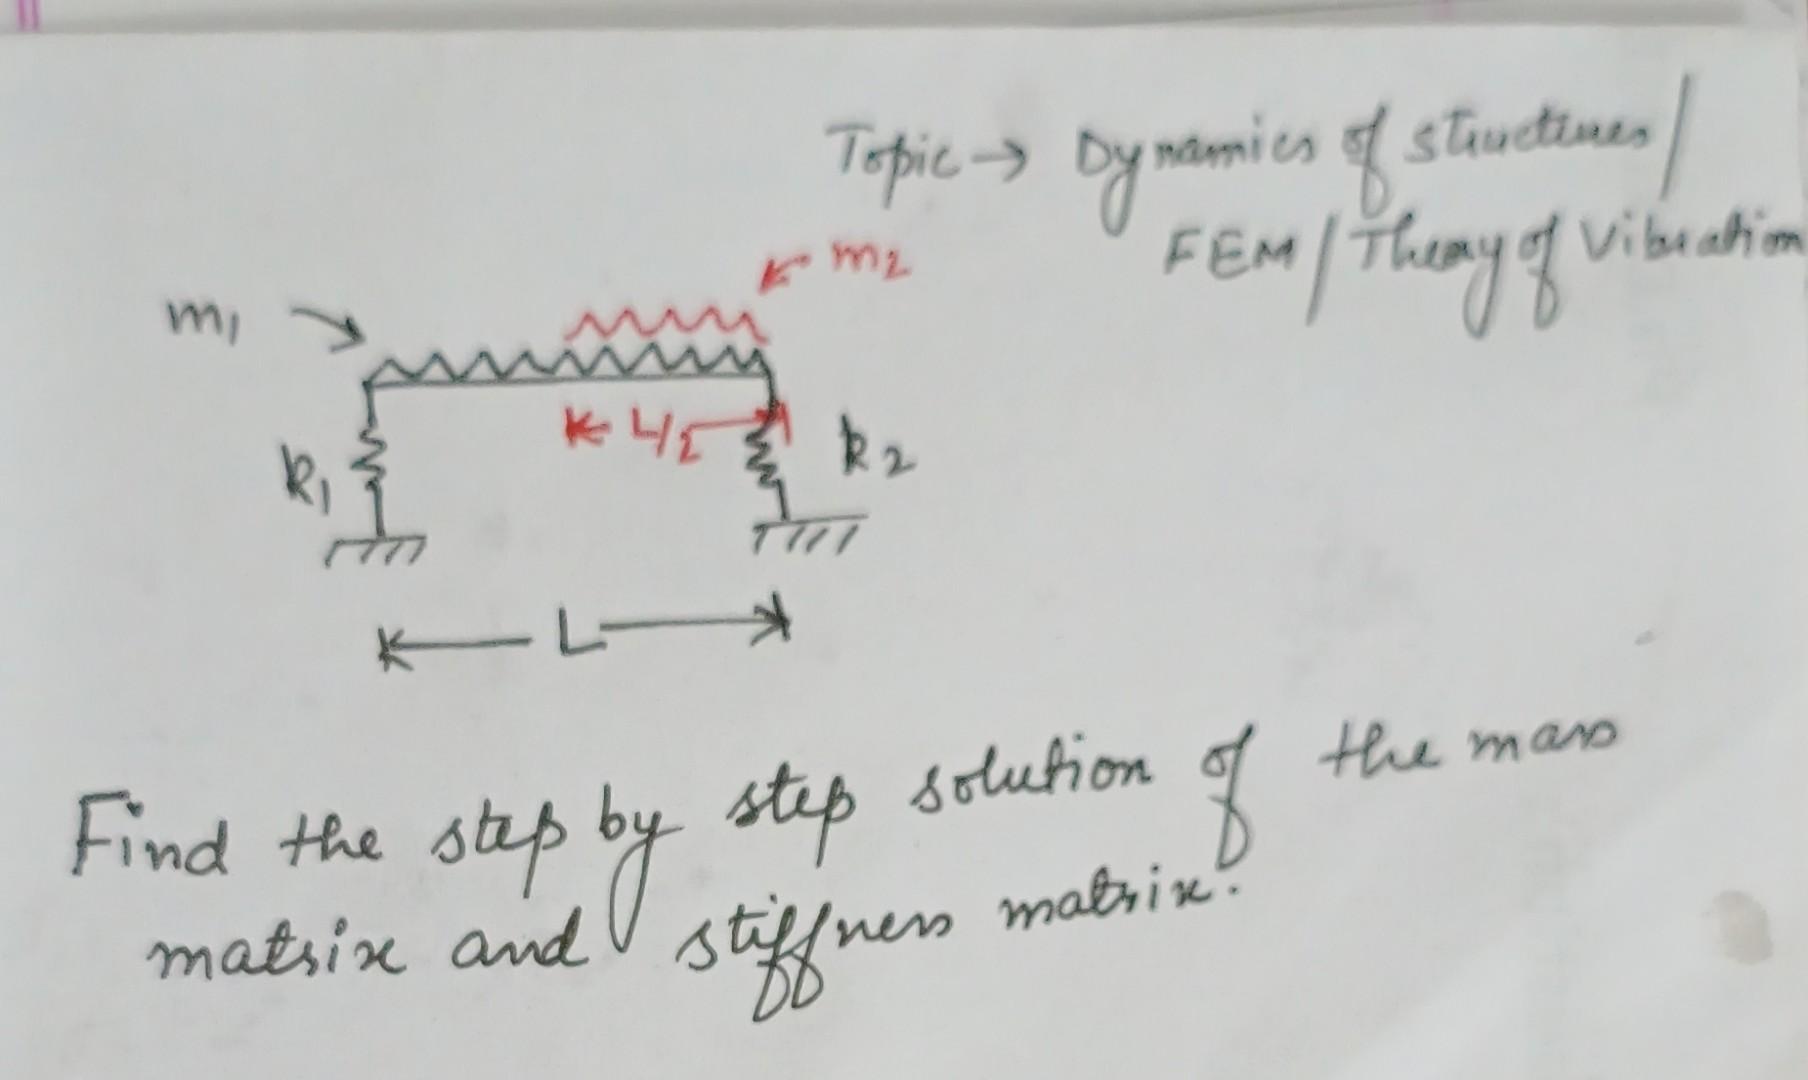 Topic → Dynamics of structures /
FEM / Theory of Vibration
m₂
m₁
L/2
k₁
k₂
L
Find the step by step solution of the mass
matrix and stiffness matrix.